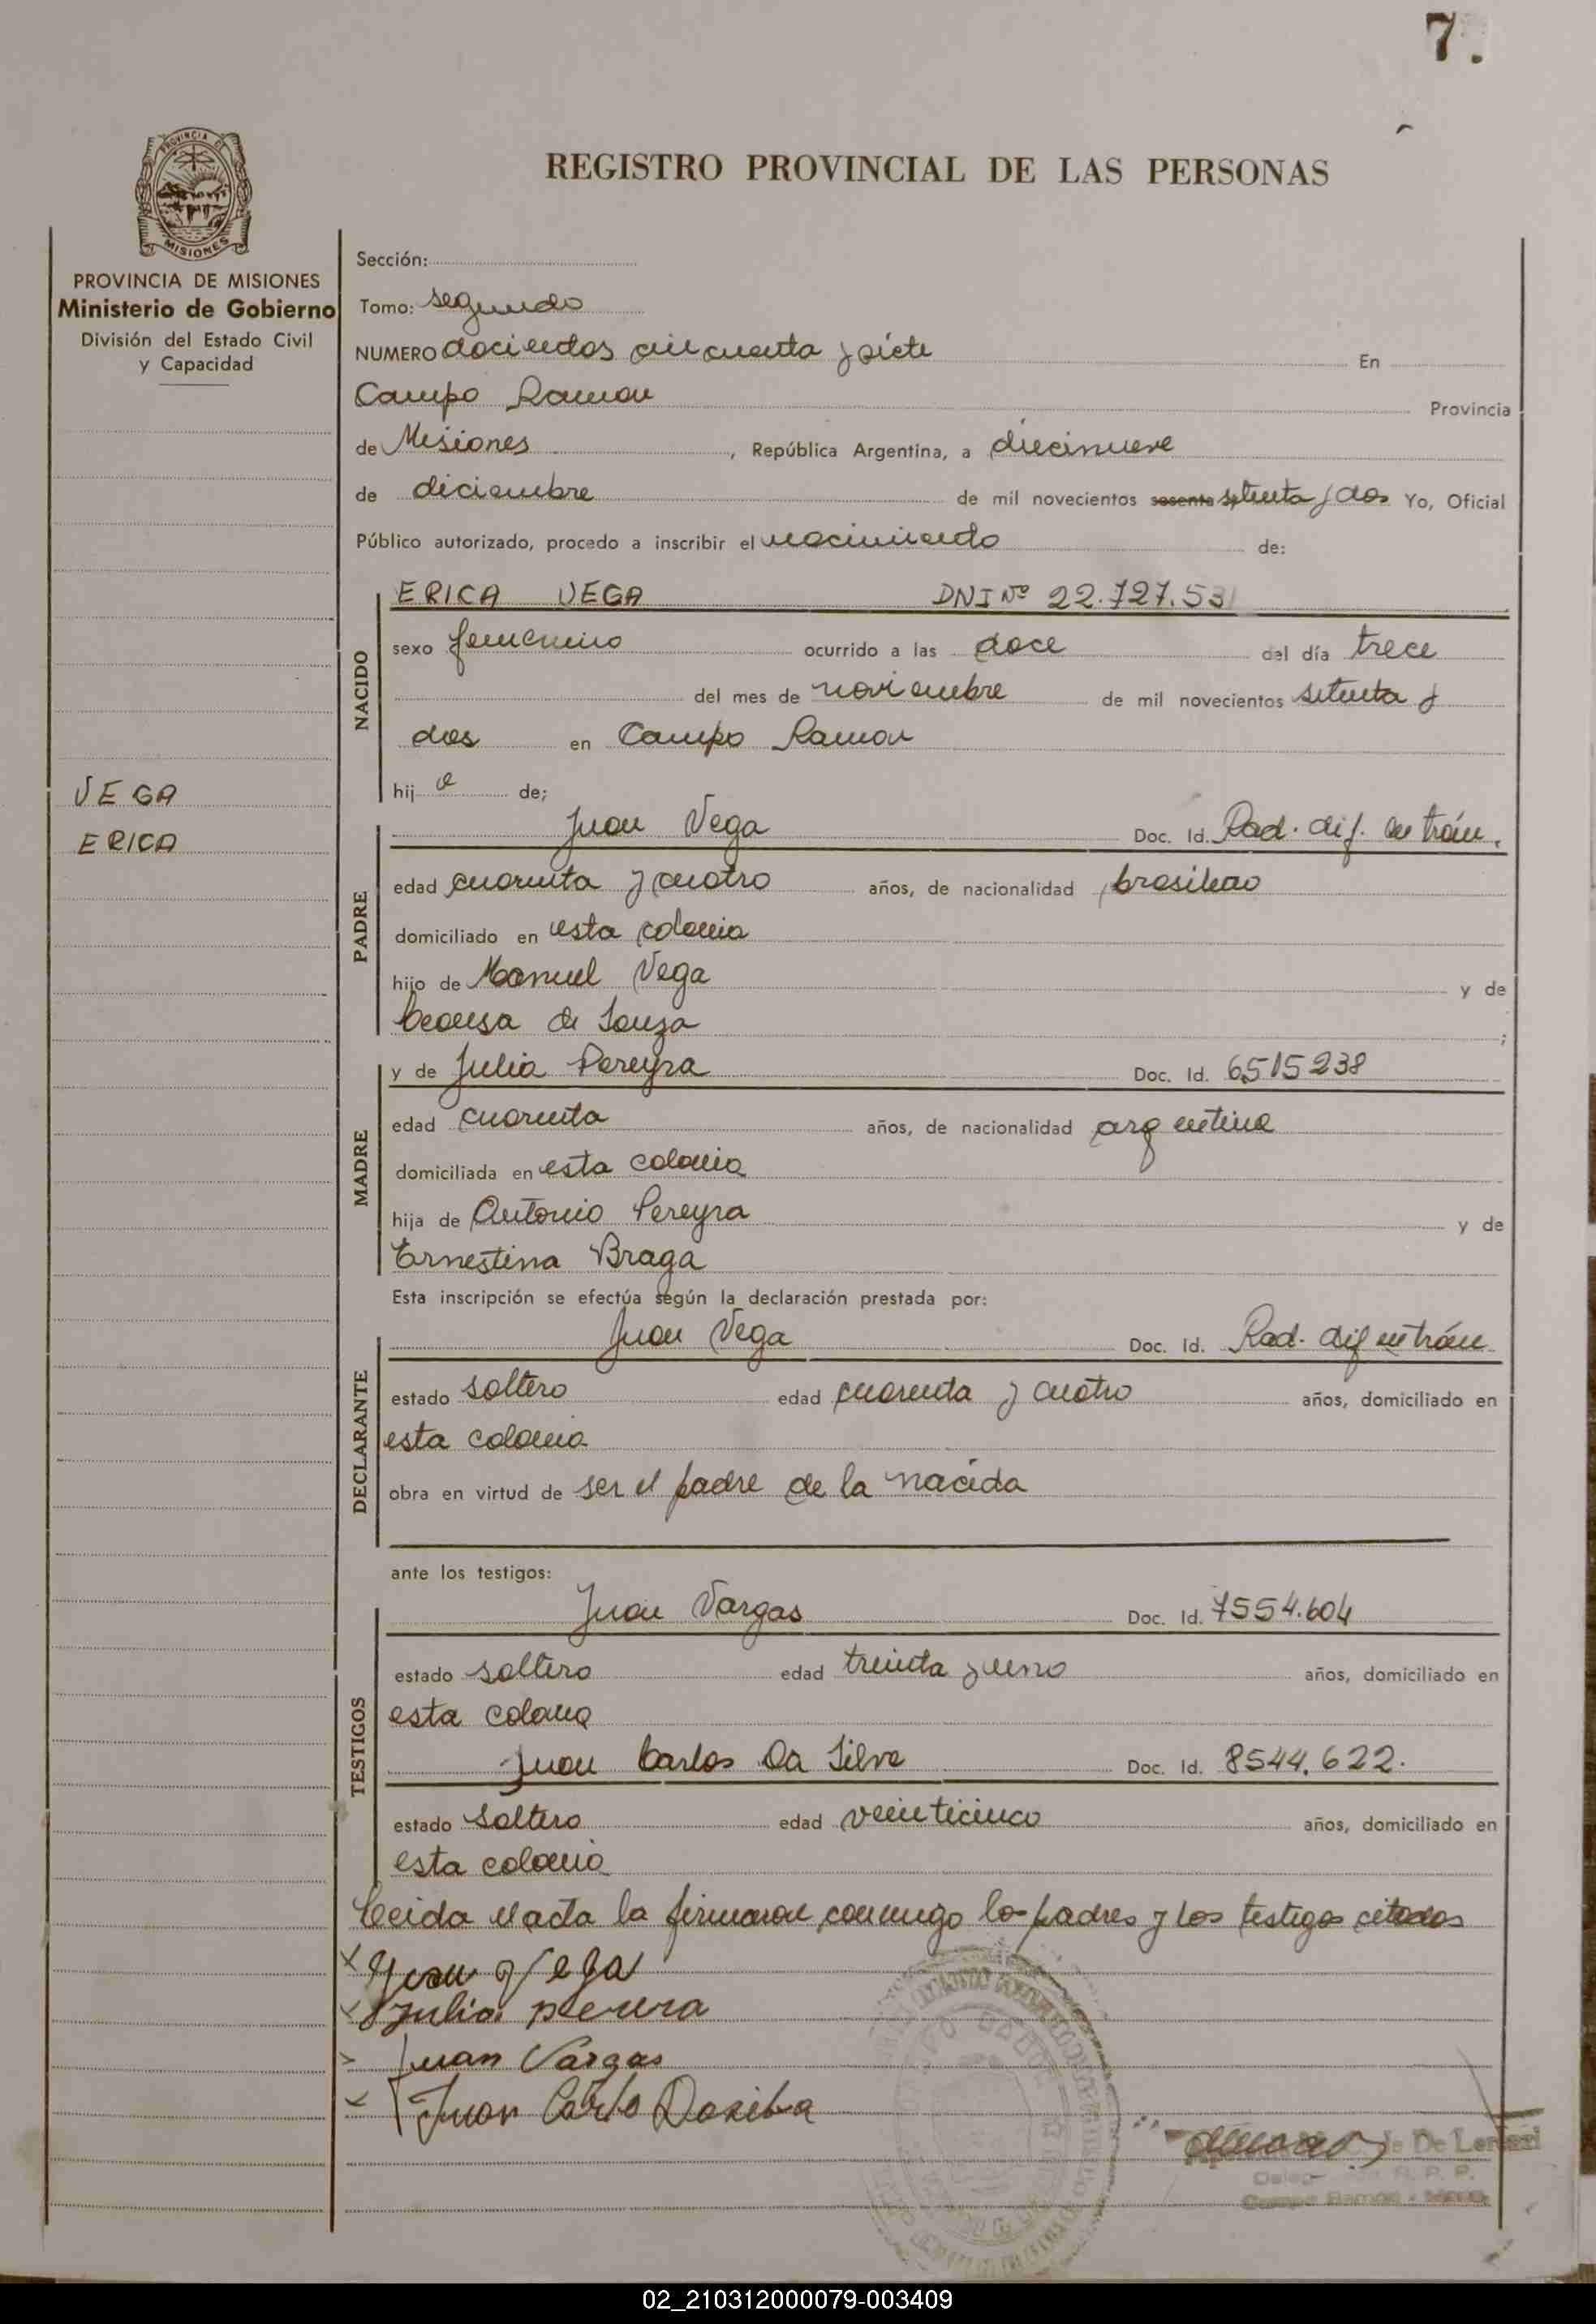 7.
REGISTRO PROVINCIAL DE LAS PERSONAS
PROVINCIA DE
MISIONES
PROVINCIA DE MISIONES
Ministerio de Gobierno
División del Estado Civil
y Capacidad
VEGA
ERICA
Sección:
Tomo: segundo
NUMERO docientos cincuenta y siete En
Campo Ramon Provincia
de Misiones, República Argentina, a diecinueve
de diciembre de mil novecientos sesenta setenta y dos Yo, Oficial
Público autorizado, procedo a inscribir el nacimiento de:
NACIDO
ERICA VEGA DNI Nº 22.727.531
sexo femenino ocurrido a las doce del día trece
del mes de noviembre de mil novecientos setenta y
dos en Campo Ramon
hij a de;
PADRE
Juan Vega Doc. Id. Rad. dif. en trám.
edad cuarenta y cuatro años, de nacionalidad brasilero
domiciliado en esta colonia
hijo de Manuel Vega y de
de Souza ;
MADRE
y de Julia Pereyra Doc. Id. 6515238
edad cuarenta años, de nacionalidad argentina
domiciliada en esta colonia
hija de Antonio Pereyra y de
Ernestina Braga
Esta inscripción se efectúa según la declaración prestada por:
DECLARANTE
Juan Vega Doc. Id. Rad. dif en trám
estado soltero edad cuarenta y cuatro años, domiciliado en
esta colonia
obra en virtud de ser el padre de la nacida
ante los testigos:
TESTIGOS
Juan Vargas Doc. Id. 7554.604
estado soltero edad treinta y uno años, domiciliado en
esta colonia
Juan Carlos Da Silva Doc. Id. 8544.622.
estado soltero edad veinticinco años, domiciliado en
esta colonia
Leida el acta la firmaron conmigo los padres y los testigos citados
x Juan Vega
x Julia perera
x Juan Vargas
x Juan Carlo Dasilva
de De
R. P. P.
Campo Ramon - Mnes.
02_210312000079-003409